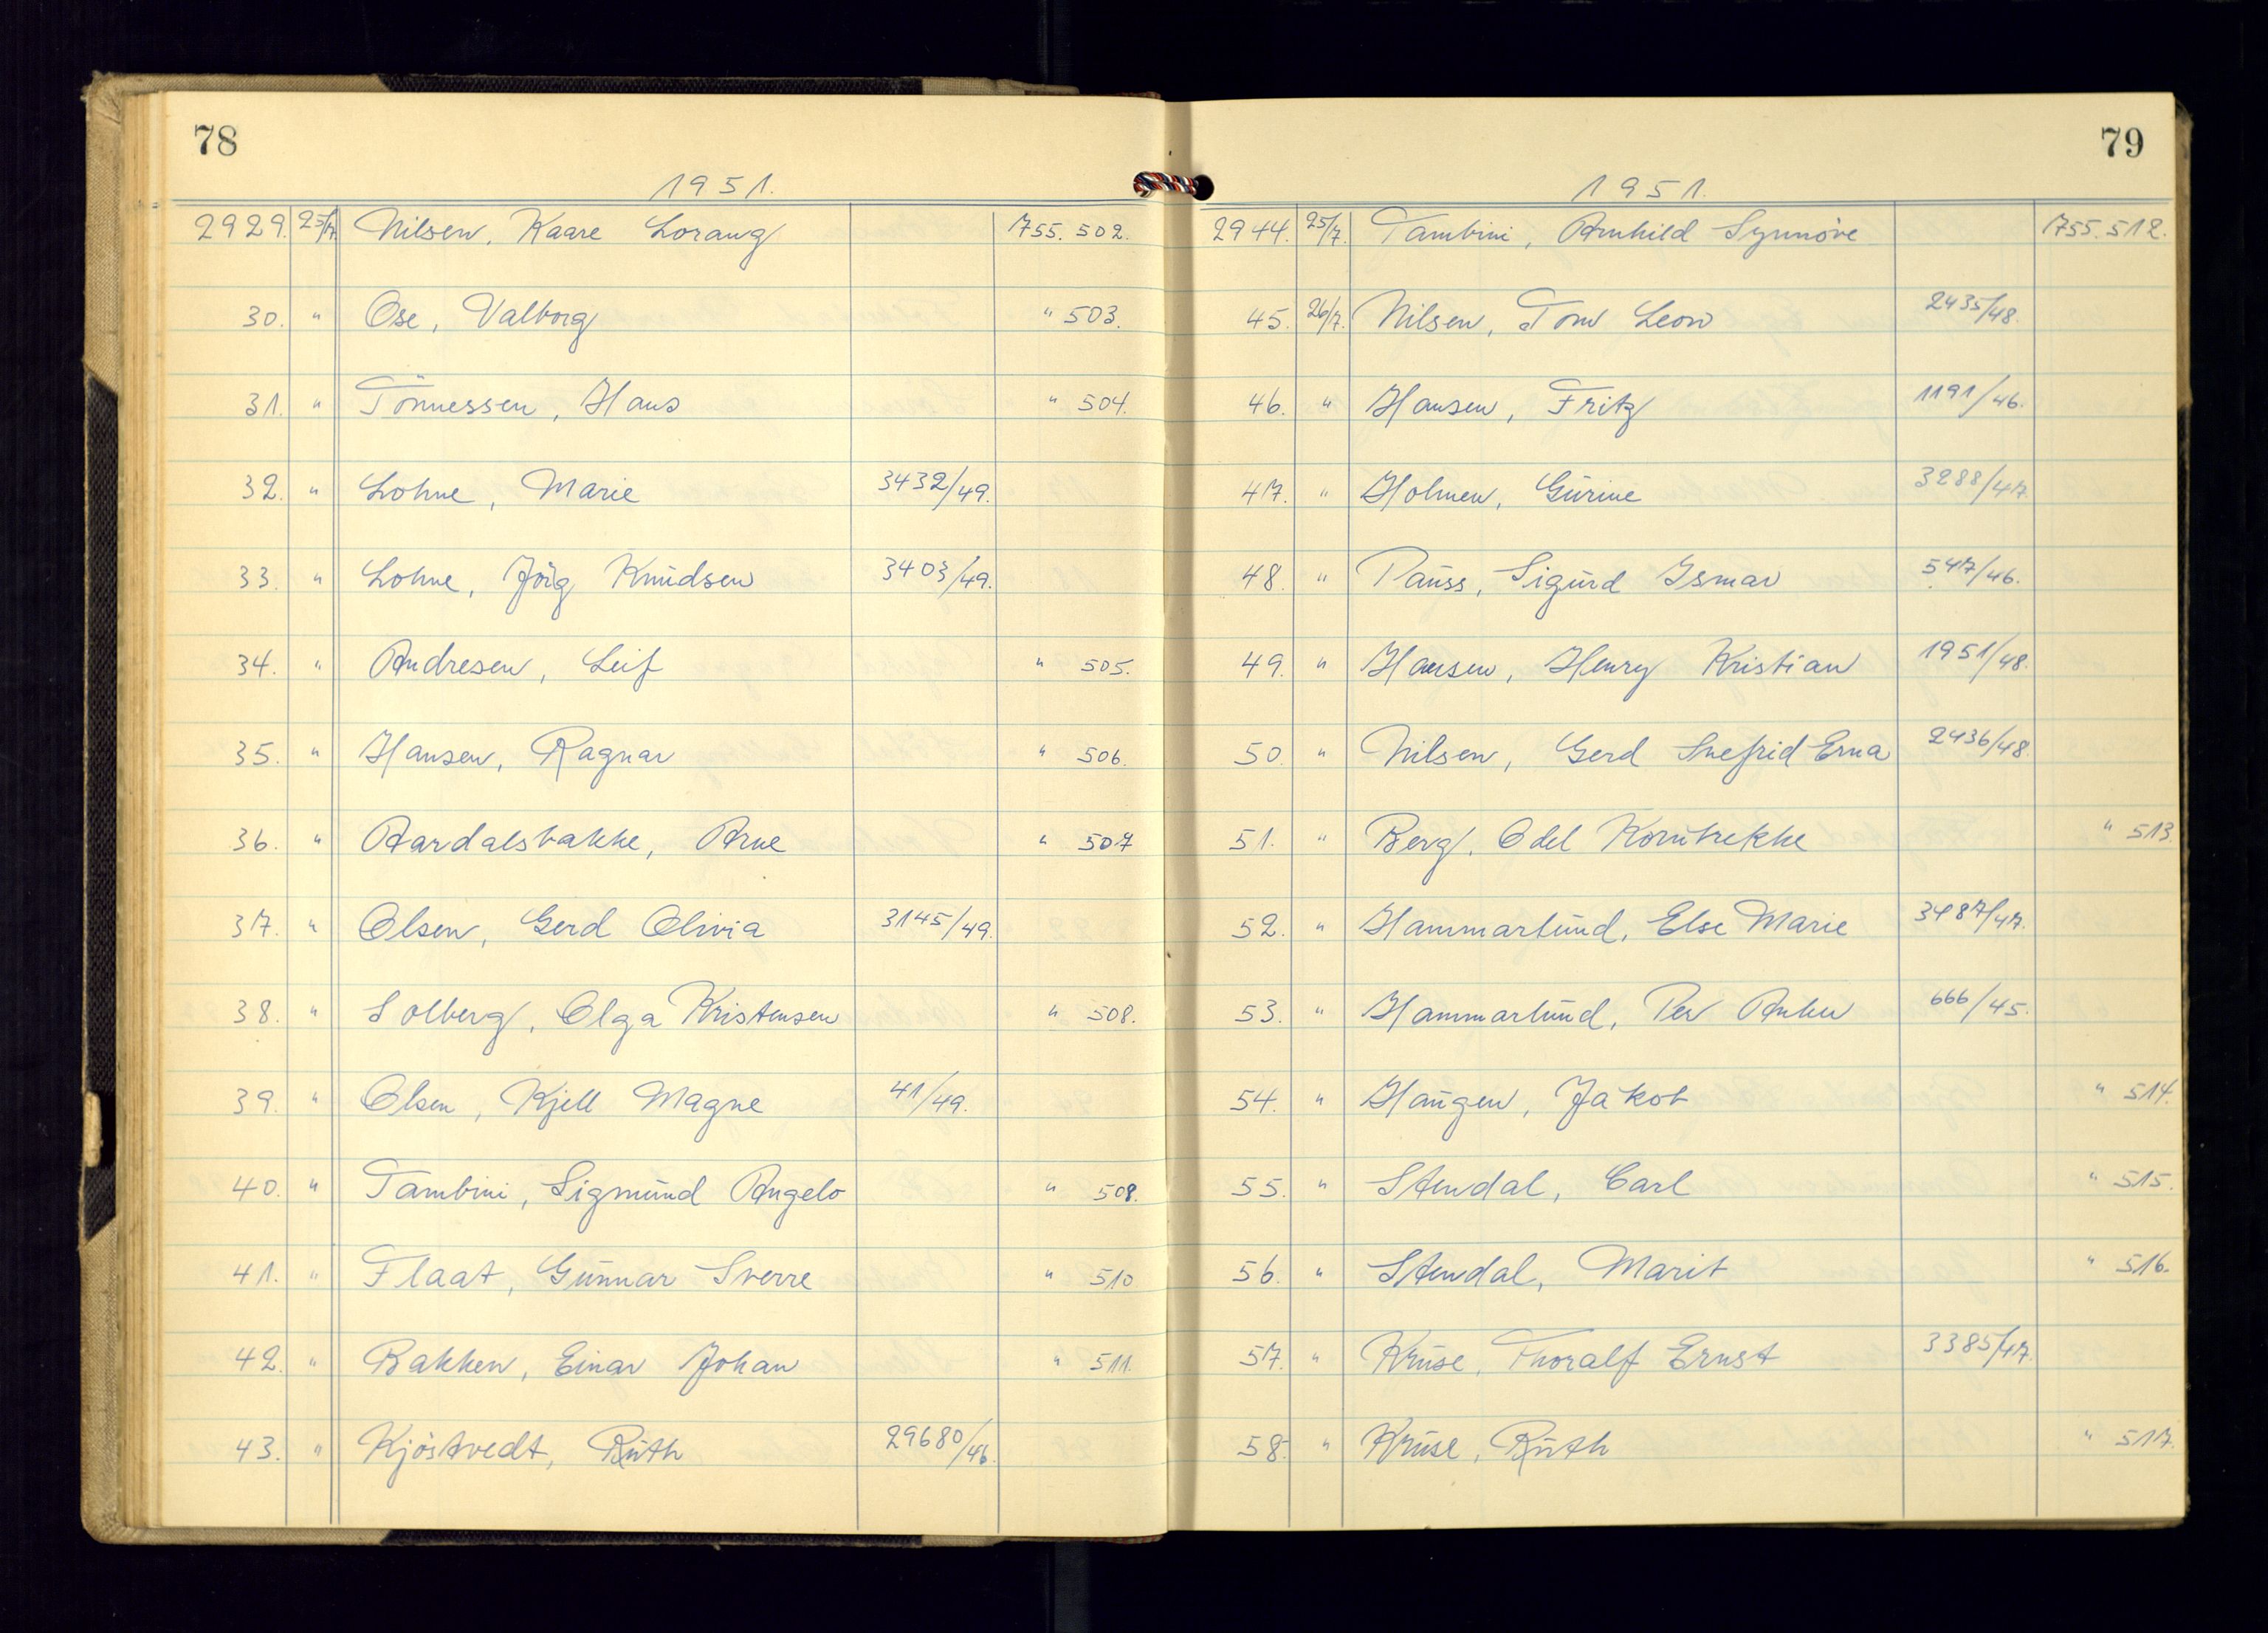 78
1951.
2929. 25/7. Nilsen, Kaare Lorang 755.502.
30. " Ose, Valborg " 503.
31. " Tönnessen, Hans " 504.
32. " Lohne, Marie 3432/49.
33. " Lohne, Jörg Knudsen 3403/49.
34. " Andresen, Leif " 505.
35. " Hansen, Ragnar " 506.
36. " Aardalsbakke, Arne " 507
37. " Olsen, Gerd Olivia 3145/49.
38. " Solberg, Olga Kristensen " 508.
39. " Olsen, Kjell Magne 41/49.
40. " Tambini, Sigmund Angelo " 509.
41. " Flaat, Gunnar Sverre " 510
42. " Bakken, Einar Johan " 511.
43. " Kjöstvedt, Ruth 29680/46.
79
1951.
2944. 25/7. Tambini, Arnhild Synnöve 755.512.
45. 26/7. Nilsen, Tom Leon 2435/48.
46. " Hansen, Fritz 1191/46.
47. " Holmen, Gurine 3288/47.
48. " Pauss, Sigurd Ismar 547/46.
49. " Hansen, Henry Kristian 1951/48.
50. " Nilsen, Gerd Snefrid Erna 2436/48.
51. " Berg, Odel Kornbrekke " 513.
52. " Hammarlund, Else Marie 3487/47.
53. " Hammarlund, Per 666/45.
54. " Haugen, Jakob " 514.
55. " Stendal, Carl " 515.
56. " Stendal, Marit " 516.
57. " Kruse, Thoralf Ernst 3385/47.
58. " Kruse, Ruth " 517.